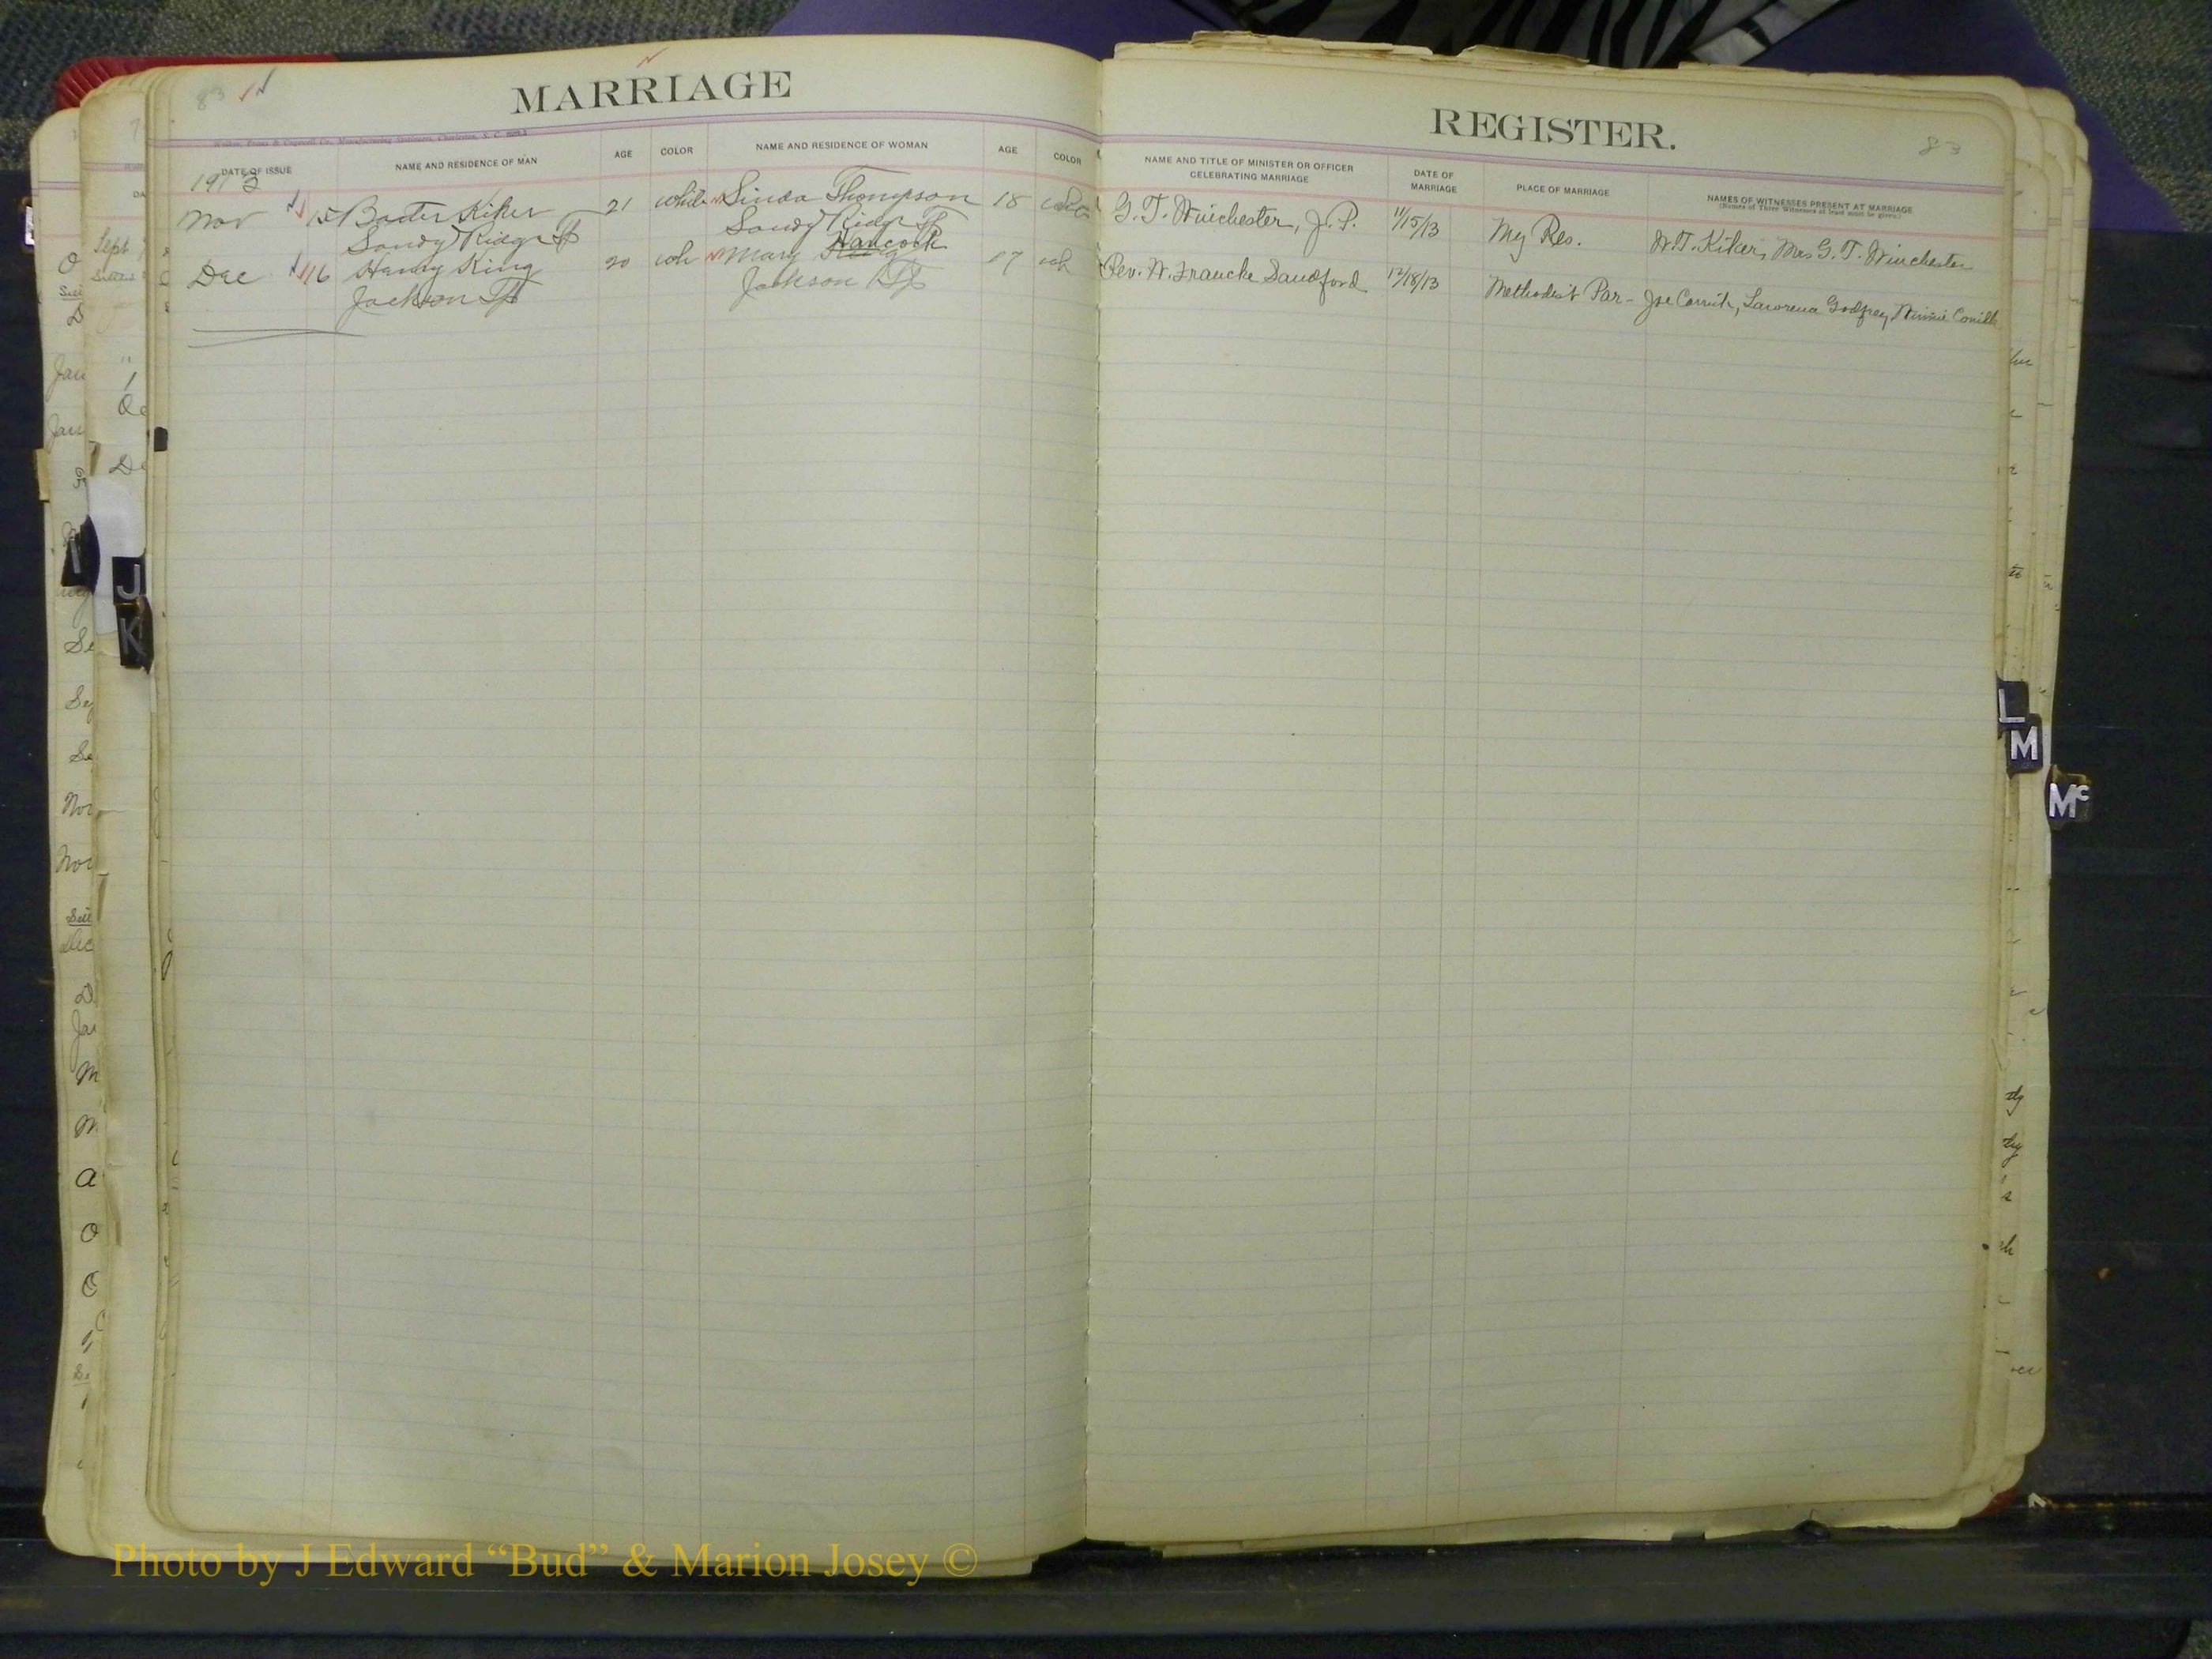 83
MARRIAGE
Walker, Evans & Cogswell Co., Manufacturing Stationers, Charleston, S. C.
DATE OF ISSUE NAME AND RESIDENCE OF MAN AGE COLOR NAME AND RESIDENCE OF WOMAN AGE COLOR
1913
Nov 15 Baxter Kiker 21 white Linda Thompson 18 white
Sandy Ridge Tp Sandy Ridge Tp
Hancock
Dec 16 Henry King 20 wh Mary King 17 wh
Jackson Tp Jackson Tp
REGISTER.
83
NAME AND TITLE OF MINISTER OR OFFICER CELEBRATING MARRIAGE DATE OF MARRIAGE PLACE OF MARRIAGE NAMES OF WITNESSES PRESENT AT MARRIAGE
(Names of Three Witnesses at least must be given.)
G. T. Winchester, J. P. 11/15/13 My Res. W. T. Kiker, Mrs G. T. Winchester
Rev. W. Francke Sandford 12/18/13 Methodist Par- Joe Godfrey, Minnie
I
J
K
L
M
Mc
Sept
Jan
Nov
Nov
Dec
Photo by J Edward “Bud” & Marion Josey ©